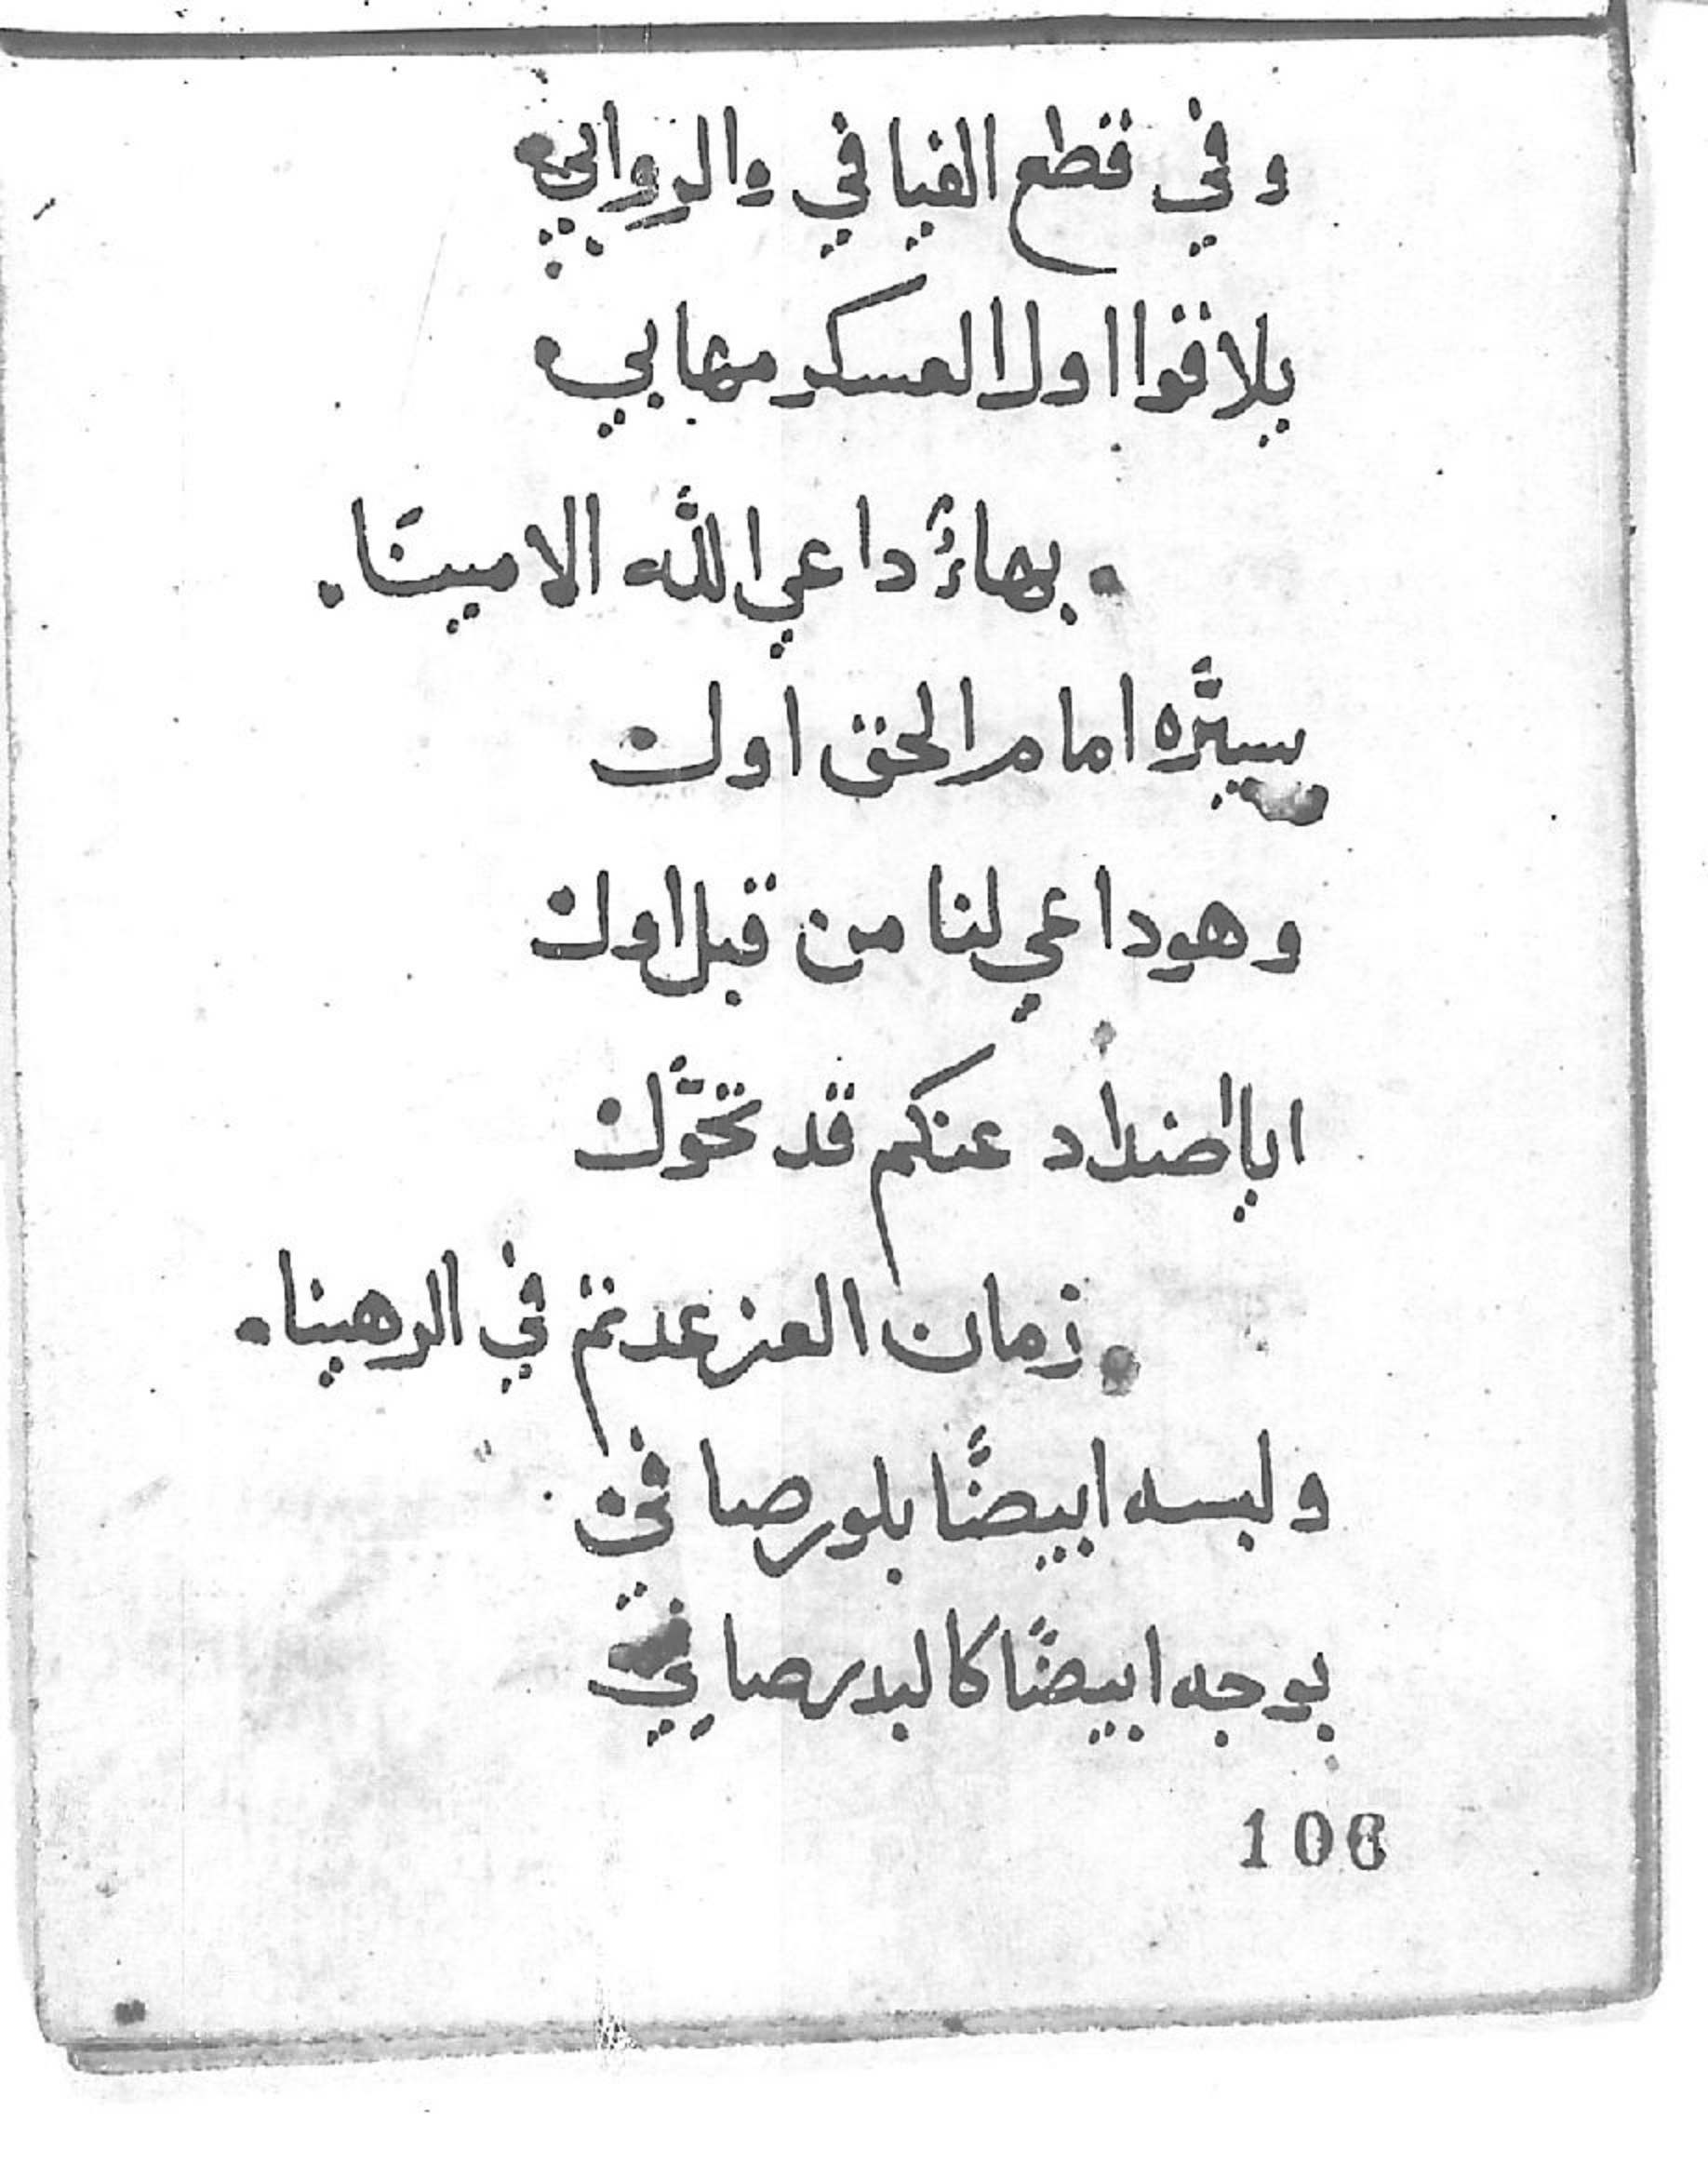 وفي قطع الفيافي والروابي
يلاقوا اول العسكر مهابي
بهاءُ داعي الله الامينَا
سيتَّره امام الحق اول
وهو داعي لنا من قبل اول
ايا اضداد عنكم قد تحوَّل
زمان العز عدتم في الرهينا
ولبسه ابيضًا بلور صافي
بوجه ابيضًا كالبدر صافي
106